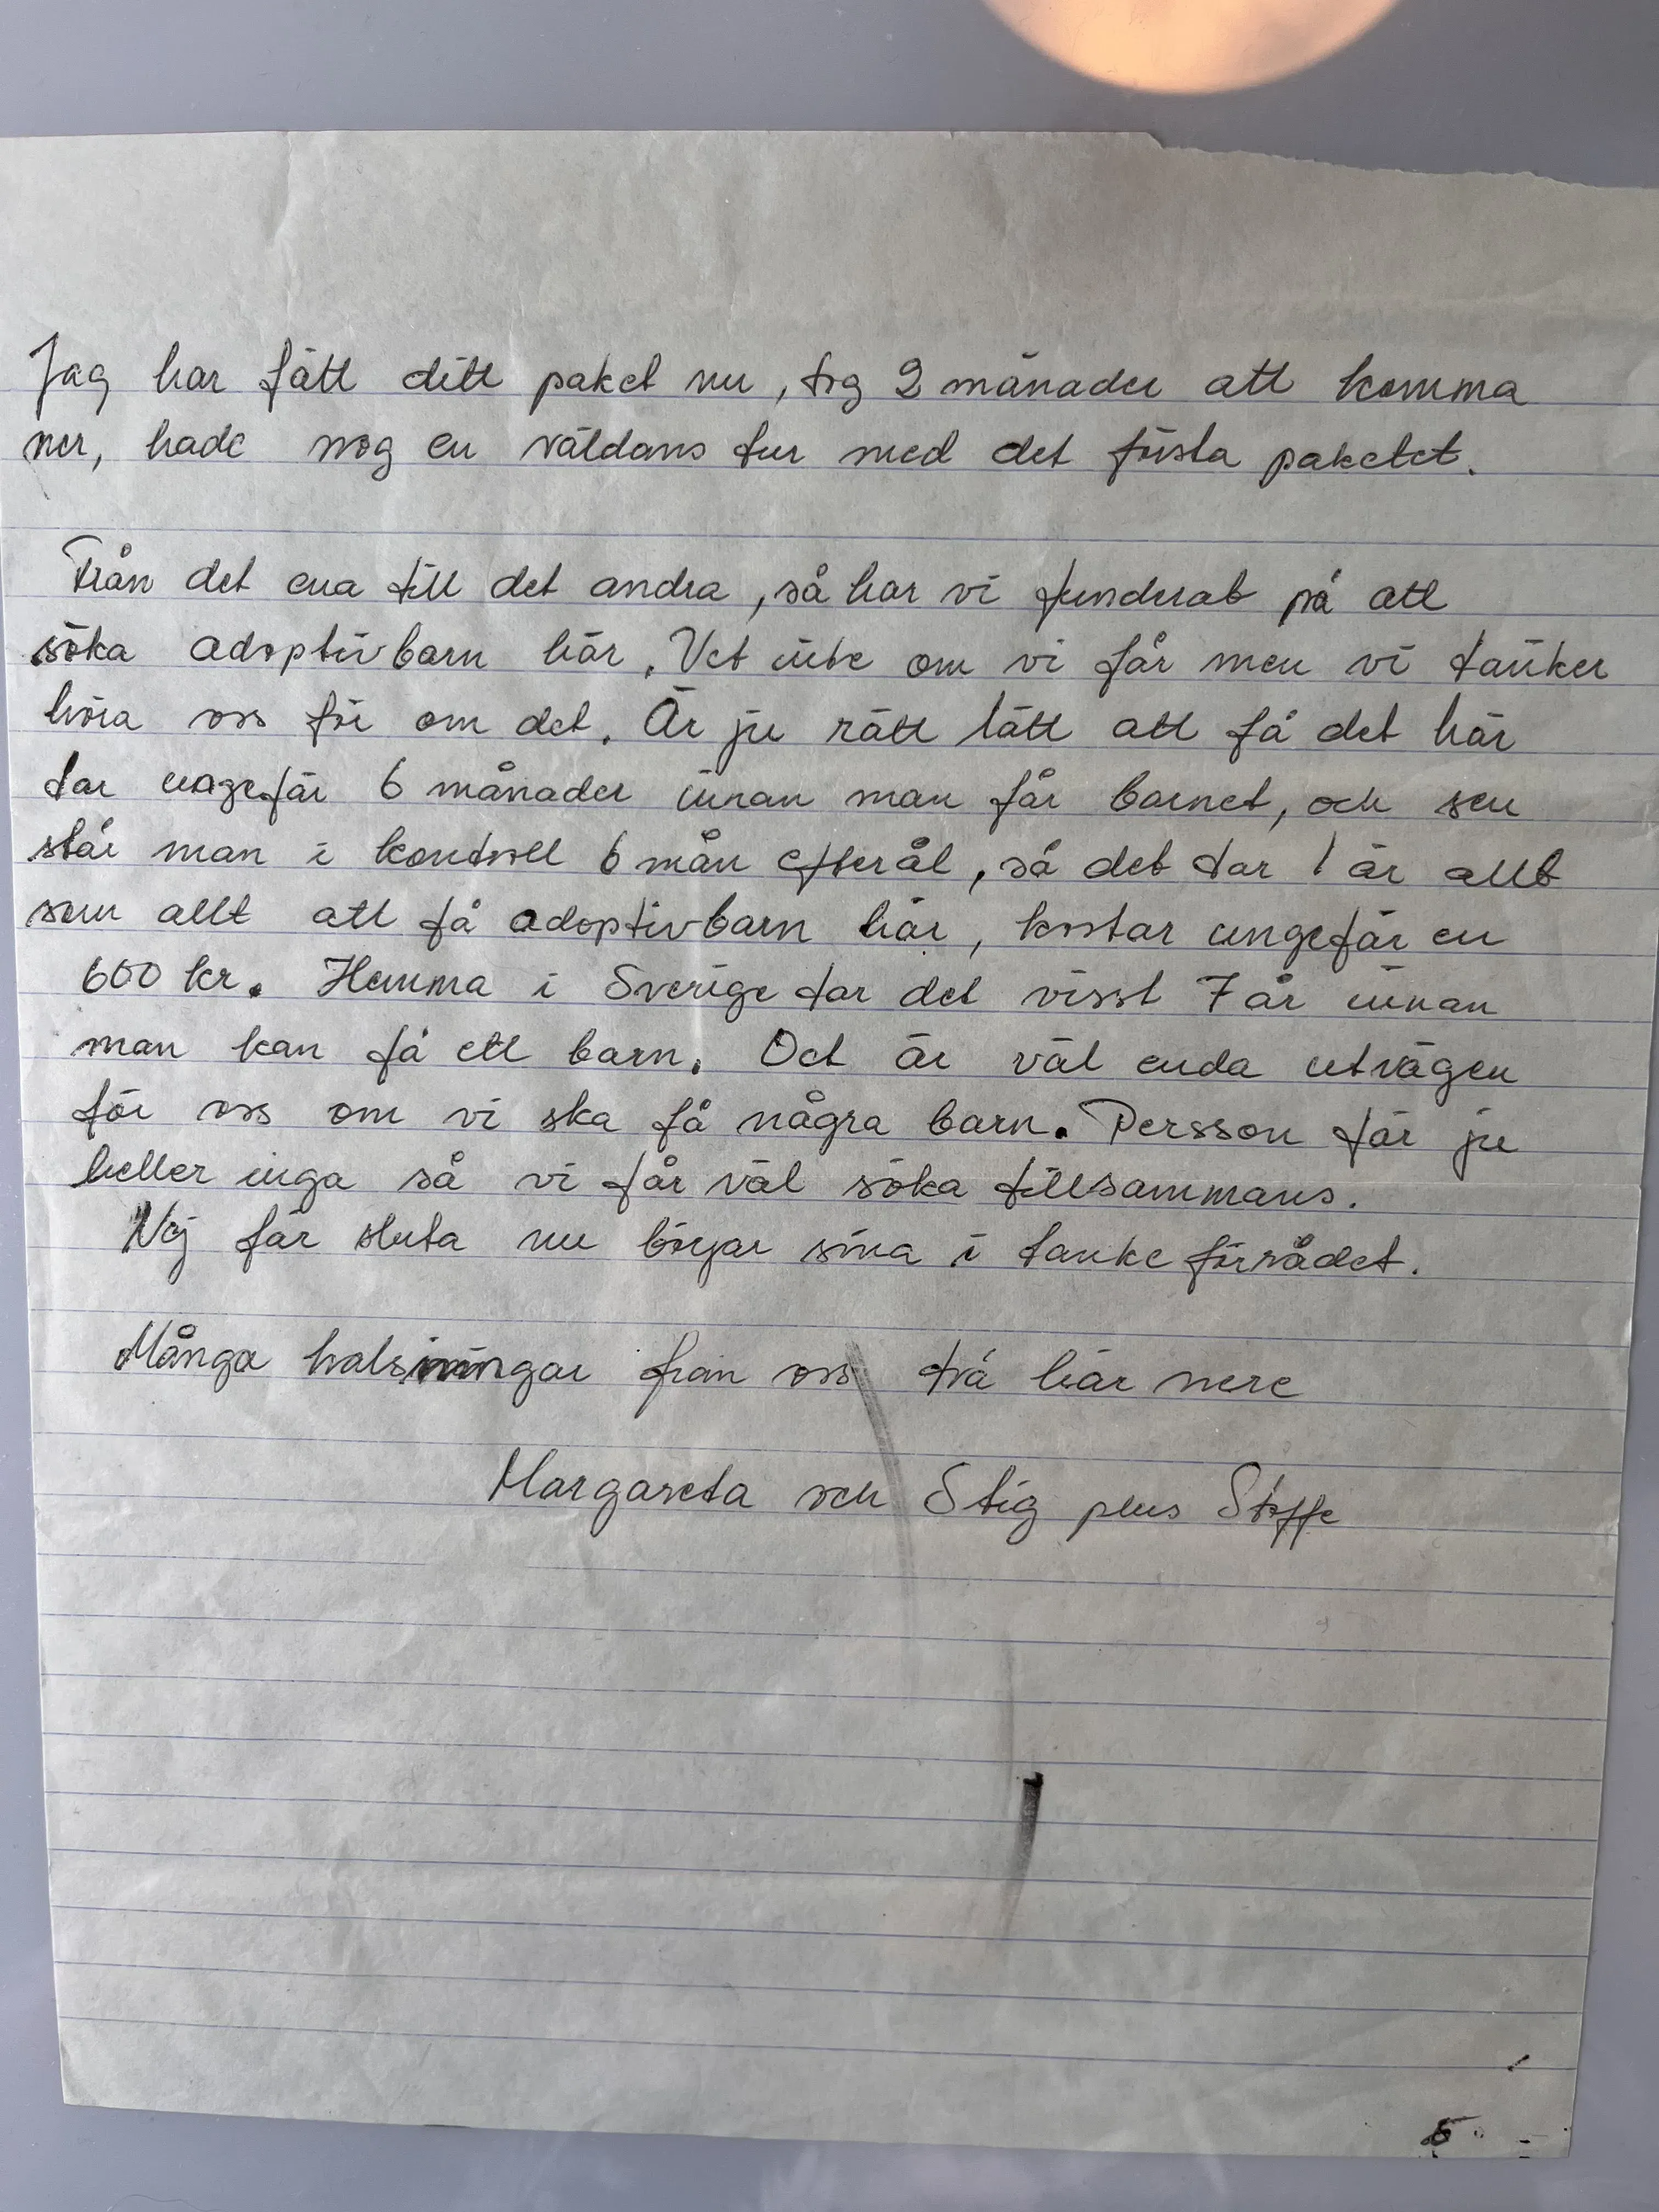 Jag har fått ditt paket nu, tog 2 månader att komma
ner, hade nog en väldans tur med det första paketet.
Från det ena till det andra, så har vi funderat på att
söka adoptivbarn här. Vet inte om vi får men vi tänker
höra oss för om det. Är ju rätt lätt att få det här
tar ungefär 6 månader innan man får barnet, och sen
står man i kontroll 6 mån efteråt, så det tar 1 år allt
som allt att få adoptivbarn här, kostar ungefär en
600 kr. Hemma i Sverige tar det visst 7 år innan
man kan få ett barn. Det är väl enda utvägen
för oss om vi ska få några barn. Persson får ju
heller inga så vi får väl söka tillsammans.
Nej får sluta nu börjar sina i tanke förrådet.
Många halsningar från oss två här nere
Margareta och Stig plus Stoffe
5